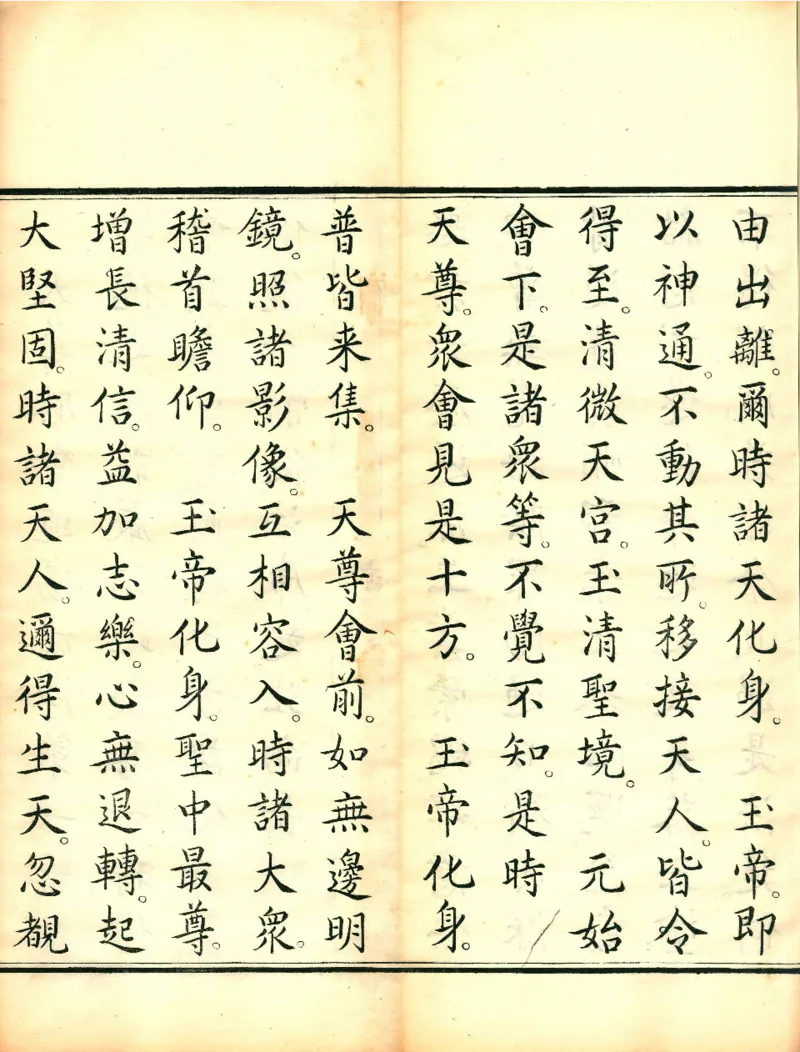 由出離。爾時諸天化身。　玉帝。即
以神通。不動其所。移接天人。皆令
得至。清微天宮。玉清聖境。　元始
會下。是諸眾等。不覺不知。是時
天尊。眾會見是十方。　玉帝化身。
普皆来集。　天尊會前。如無邊明
鏡。照諸影像。互相容入。時諸大眾。
稽首瞻仰。　玉帝化身。聖中最尊。
增長清信。益加志樂。心無退轉。起
大堅固。時諸天人。邇得生天。忽覩